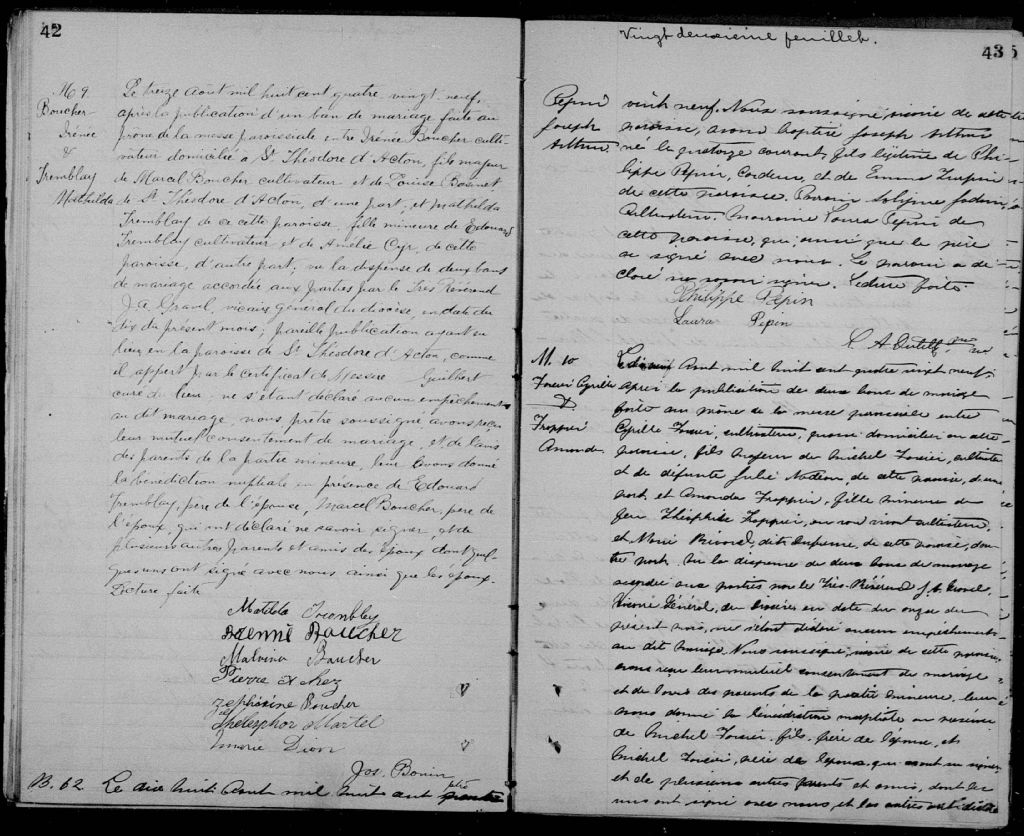 42
M 9
Boucher
Irénée
&
Tremblay
Mathilda
Le treize Aout mil huit cent quatre-vingt-neuf,
après la publication d'un ban de mariage faite au
prone de la messe paroissiale entre Irénée Boucher culti-
vateur domicilié à St Théodore d'Acton, fils majeur
de Marcel Boucher cultivateur et de Louise
de St Théodore d'Acton, d'une part; et Mathilda
Tremblay de cette paroisse, fille mineure de Edouard
Tremblay cultivateur et de Amélie Cyr, de cette
paroisse, d'autre part; vu la dispense de deux bans
de mariage accordée aux parties par le Très Révérend
J. A. Gravel, vicaire général du diocèse, en date du
dix du présent mois; pareille publication ayant eu
lieu en la paroisse de St Théodore d'Acton, comme
il appert par le certificat de Messire Guilbert
curé du lieu; ne s'étant déclaré aucun empêchement
au dit mariage, nous prêtre soussigné avons reçu
leur mutuel consentement de mariage, et de l'avis
des parents de la partie mineure, leur avons donné
la bénédiction nuptiale en présence de Edouard
Tremblay, père de l'épouse, Marcel Boucher, père de
l'époux, qui ont déclaré ne savoir signer, et de
plusieurs autres parents et amis des époux dont quel-
ques uns ont signé avec nous ainsi que les époux.
Lecture faite
Matilda Trombley
Boucher
Malvina Boucher
Pierre
Zephirine Boucher
Thelesphor Martel
Dion
Jos. Bonin ptre
B. 62. Le dix huit Aout mil huit cent quatre
Vingt deuxieme feuillet.
43
Pepin
Joseph
Arthur
vint neuf. Nous soussigné, vicaire de cette
paroisse, avons baptisé Joseph Arthur
né le quatorze courant, fils légitime de Phi-
lippe Pepin, Cordonnier, et de Emma
de cette paroisse. Parrain
Cultivateur. Marraine Laura Pepin de
cette paroisse, qui, ainsi que le père
a signé avec nous. Le parrain a dé-
claré ne savoir signer. Lecture faite
Philippe Pepin
Laura Pepin
C A
M. 10
Cyrille
&
Frappier
Amanda
Aout mil huit cent quatre vingt neuf,
après la publication de deux bans de mariage
faite au prône de la messe paroissiale entre
Cyrille cultivateur, domicilié en cette
paroisse, fils majeur de Michel cultivateur
et de défunte Julie Nadeau, de cette paroisse, d'une
part, et Amanda Frappier, fille mineure de
feu Théophile Frappier, en son vivant cultivateur,
et Marie dit de cette paroisse, d'au-
tre part. Vu la dispense de deux bans de mariage
accordée aux parties par le Très-Révérend J. A. Gravel,
Vicaire Général, du diocèse en date du onze du
présent mois, ne s'étant déclaré aucun empêchement
au dit mariage. Nous soussigné, vicaire de cette paroisse,
avons reçu leur mutuel consentement de mariage
et de l'avis des parents de la partie mineure, leur
avons donné la bénédiction nuptiale en présence
de Michel fils, père de l'épouse, et
Michel père de l'époux, qui
et de plusieurs autres parents et amis, dont les
uns ont signé avec nous, et les autres ont déclaré